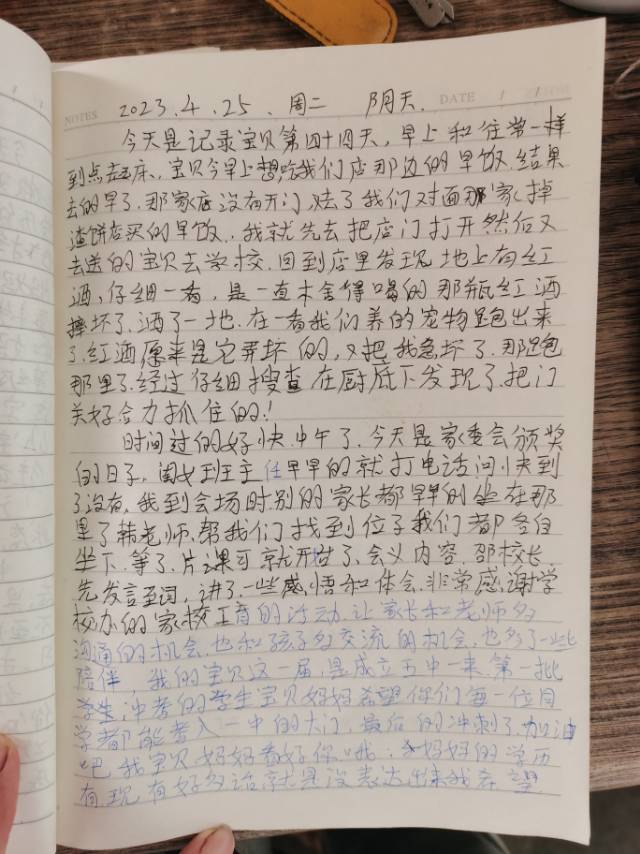 NOTES
DATE / /
2023.4.25. 周二 阴天.
今天是记录宝贝第四十四天，早上和往常一样
到点去起床、宝贝今早上想吃我们店那边的早饭.结果
去的早了.那家店没有开门.去了我们对面那家掉
渣饼店买的早饭.我就先去把店门打开然后又
去送的宝贝去学校.回到店里发现地上有红
酒,仔细一看,是一直不舍得喝的那瓶红酒
摔坏了.洒了一地.在一看我们养的宠物跑出来
了.红酒原来是它弄坏的,又把我急坏了.那跑
那里了.经过仔细搜查在厨底下发现了.把门
关好合力抓住的!
时间过的好快.中午了.今天是家委会颁奖
的日子,闺女班主任早早的就打电话问快到
了没有.我到会场时别的家长都早早的坐在那
里了韩老师.帮我们找到位子我们都各自
坐下.等了.片课可就开始了.会义内容.邵校长
先发言至词,讲了.一些感悟和体会.非常感谢学
校办的家校工育的活动.让家长和老师多
沟通的机会.也和孩子多交流的机会.也多了一些
陪伴,我的宝贝这一届,是成立五中一来.第一批
学生.冲考的学生宝贝妈妈希望你们每一位同
学都能考入一中的大门,最后的冲刺了.加油
吧我宝贝妈妈看好你哦.妈妈的学历
有现有好多话就是没表达出来我希望